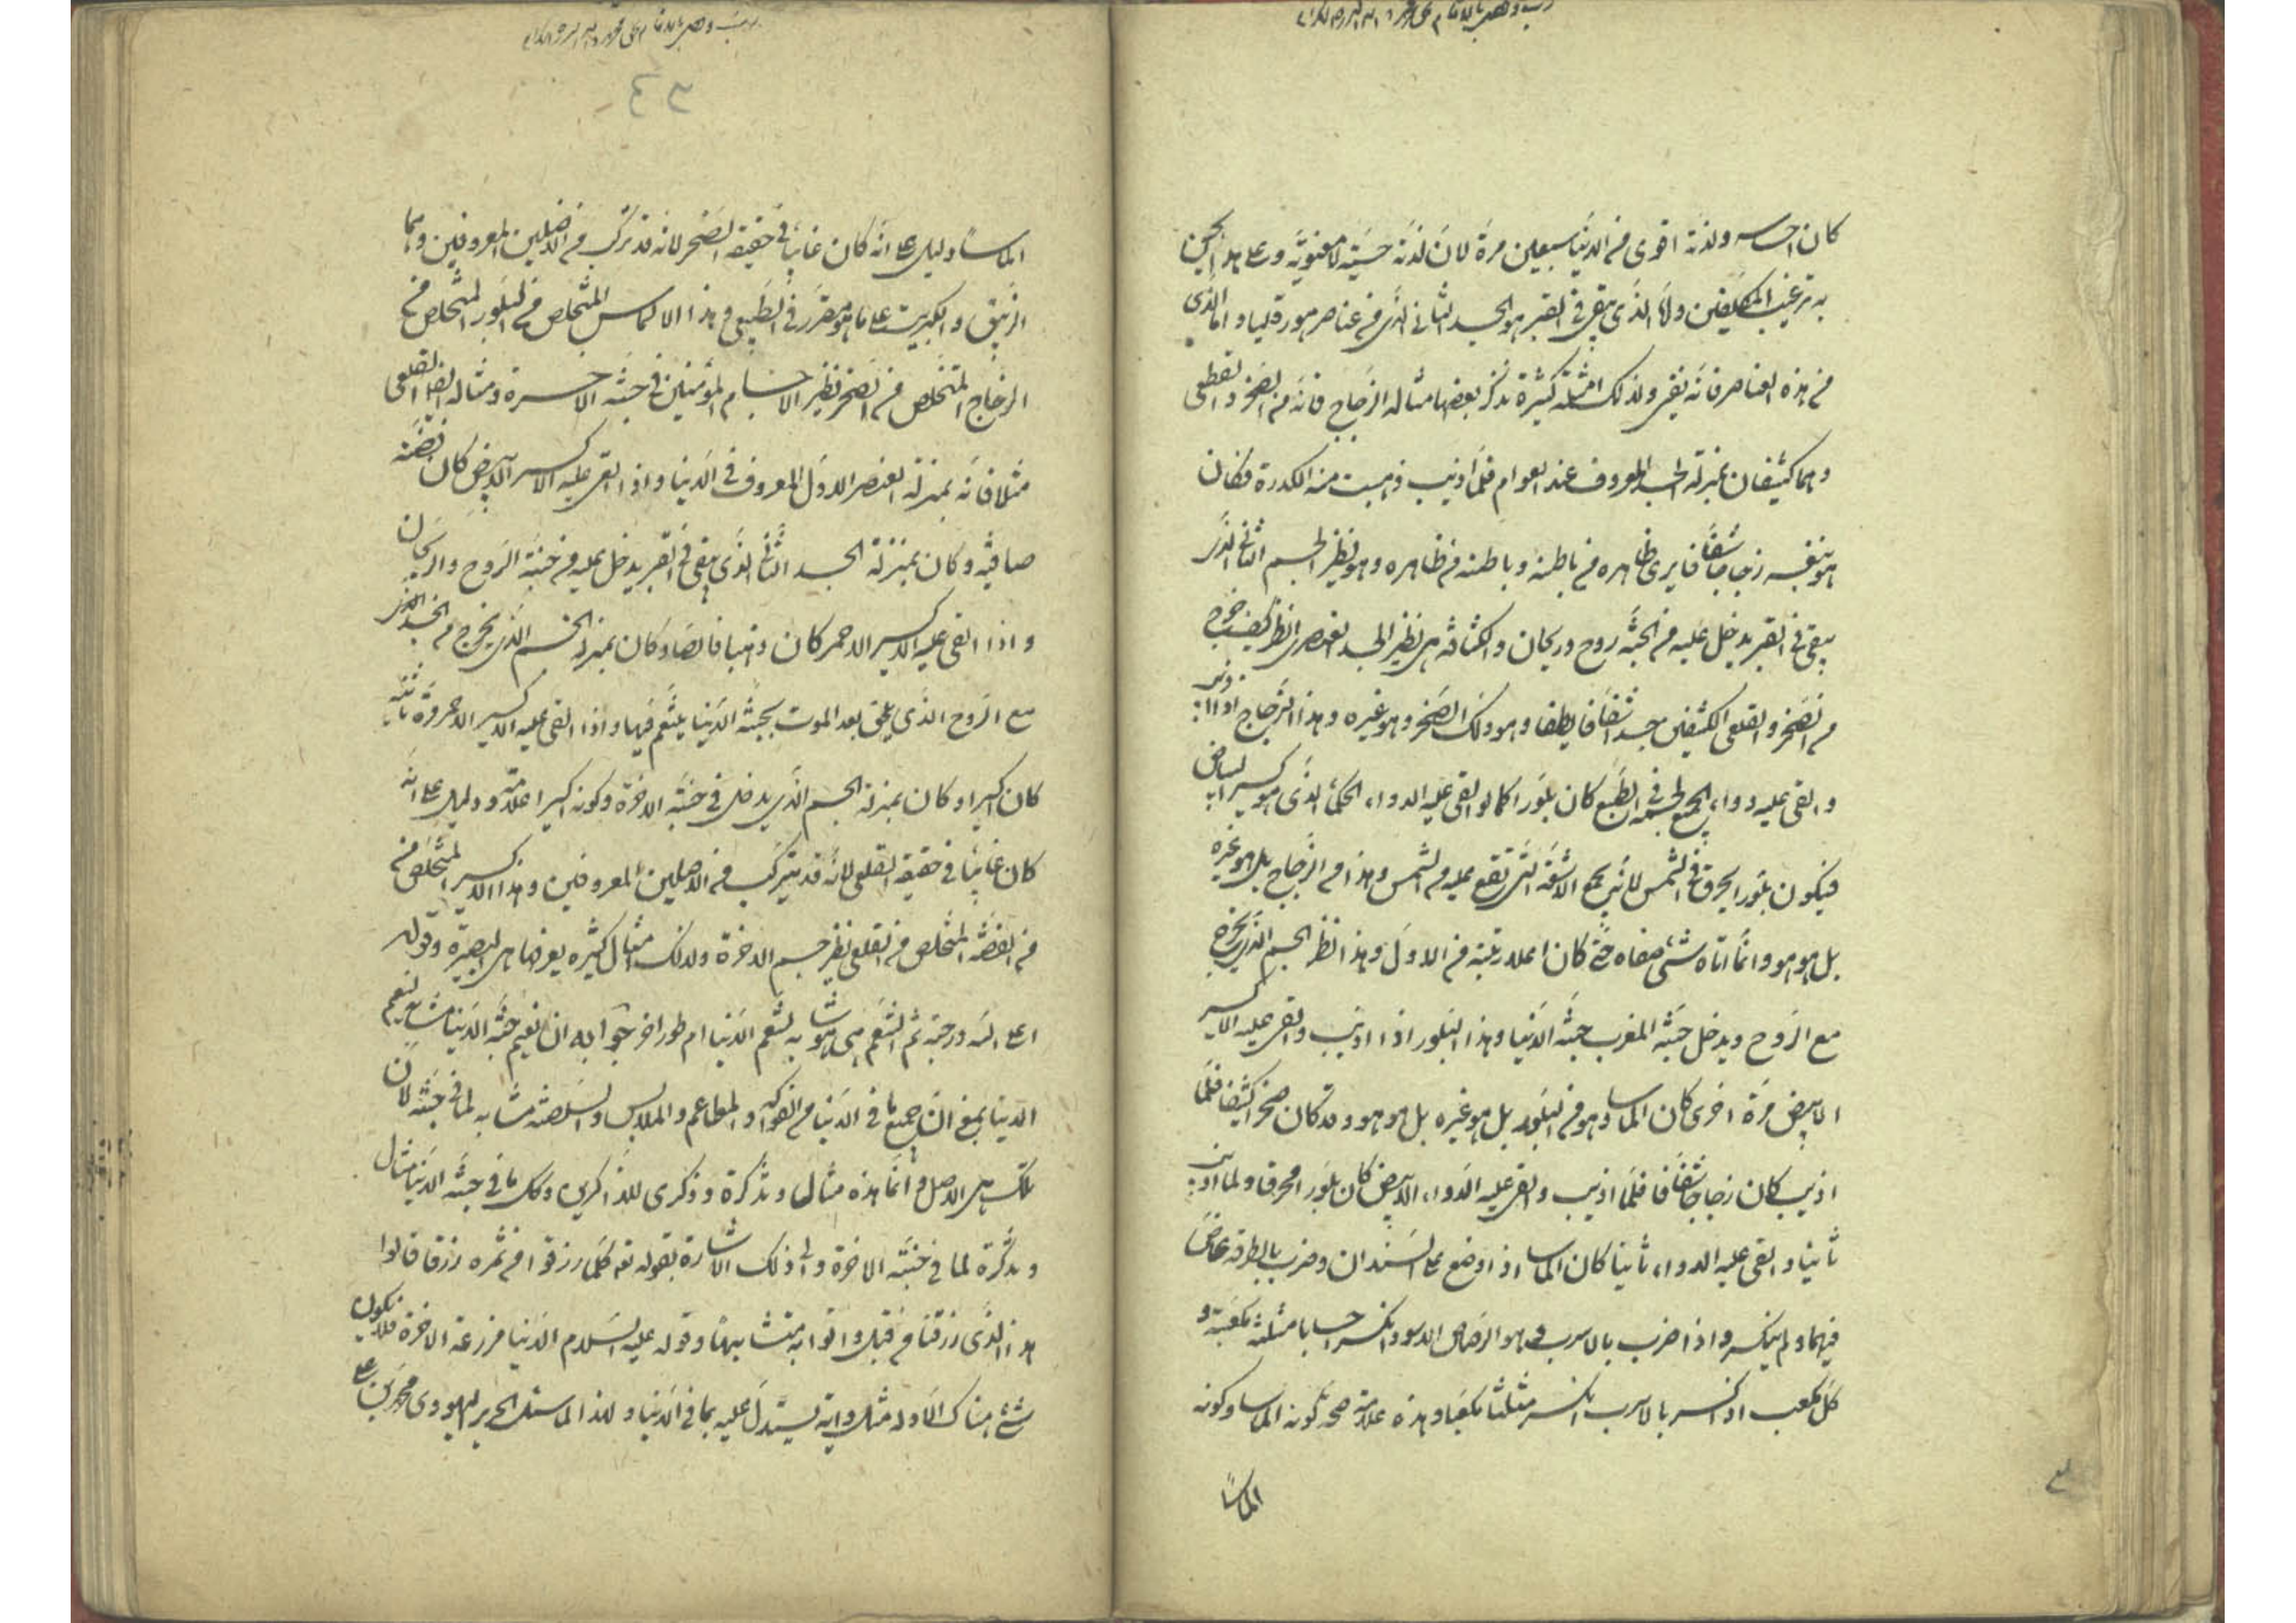 كان احساسه ولذته اقوى من الدنيا سبعين مرة لان لذته حسية لا معنوية وعلى هذا
به ترغيب المكلفين ولا الذى يبقى فى القبر هو الجسد الثانى الذى من عناصر هورقليا واما الذى
من هذه العناصر فانه يفنى ولذلك امثلة كثيرة نذكر بعضها مثاله الزجاج فانه من الصخر والقطعى
وهما كثيفان بمنزلة الجسد المعروف عند العوام فلما اذيب ذهبت منه الكدرة فكان
هو بنفسه زجاجا شفافا يرى ظاهره من باطنه وباطنه من ظاهره وهو نظير الجسم الثانى الذى
يبقى فى القبر يدخل عليه من الجنة روح وريحان والكثافة هى نظير الجسد العنصرى انظر كيف خرج
من الصخر والقلعى الكثيفين جسد شفاف لطيف وهو ذلك الصخر وهو غيره وهذا الزجاج اذا اذيب
والقى عليه دواء يجمع لجسمه فى الطبع كان بلورا كما لو القى عليه الدواء الحكمى الذى هو اكسير البياض
فيكون بلورا يحرق فى الشمس لانه يجمع الاشعة التى تقع عليه من الشمس وهذا من الزجاج بل هو غيره
بل هو هو وانما اتاه شئ صفاه حتى كان اعلا رتبة من الاول وهذا نظير الجسم الذى يخرج
مع الروح ويدخل جنة المغرب جنة الدنيا وهذا البلور اذا اذيب والقى عليه الاكسير
الابيض مرة اخرى كان الماسا وهو من البلور بل هو غيره بل هو هو وقد كان صخرا كثيفا فلما
اذيب كان زجاجا شفافا فلما اذيب والقى عليه الدواء الابيض كان بلورا محرقا ولما اذيب
ثانيا والقى عليه الدواء ثانيا كان الماسا اذا وضع على السندان وضرب بالمطرقة غاص
فيهما ولم ينكسر واذا ضرب بالاسرب وهو الرصاص الاسود انكسر اجساما مثلثة مكعبة و
كل مكعب اذا كسر بالاسرب انكسر مثلثا مكعبا وهذه علامة صحة كونه الماسا وكونه
الماسا
٣٤
الماسا دليل على انه كان غائبا فى حقيقة الصخر لانه قد تركب من الاصلين المعروفين وهما
الزيبق والكبريت على ما هو مقرر فى الطبيعى وهذا الالماس المتخلص من البلور المتخلص من
الزجاج المتخلص من الصخر نظير الاجسام المؤمنين فى جنة الاخرة ومثاله ايضا القلعى
مثلا فانه بمنزلة العنصر الاول المعروف فى الدنيا واذا القى عليه الاكسير الابيض كان فضة
صافية وكان بمنزلة الجسد الثانى الذى يبقى فى القبر يدخل عليه من جنة الروح والريحان
واذا القى عليه الاكسير الاحمر كان ذهبا خالصا وكان بمنزلة الجسم الذى يخرج من الجسد الذى
مع الروح الذى يلحق بعد الموت بجنة الدنيا يتنعم فيها واذا القى عليه الاكسير الاحمر مرة ثانية
كان اكسيرا وكان بمنزلة الجسم الذى يدخل فى جنة الاخرة وكونه اكسيرا علامة ودليل على انه
كان غائبا فى حقيقة القلعى لانه قد يتركب من الاصلين المعروفين وهذا الاكسير المتخلص من
من الفضة المتخلص من القلعى نظير جسم الاخرة ولذلك مثال كثيرة يعرفها اهل البصيرة وقوله
اعلى الله درجته ثم التنعم هى هو شابه لتنعم الدنيا ام طور اخر جوابه ان نعيم جنة الدنيا مشابه لنعيم
الدنيا بمعنى ان جميع ما فى الدنيا من الفواكه والمطاعم والملابس مشابه لما فى جنة لان
تلك هى الاصل وانما هذه مثال وتذكرة وذكرى للذاكرين وكل ما فى جنة الدنيا مثال
وتذكرة لما فى جنة الاخرة والى ذلك الاشارة بقوله تعه كلما رزقوا من ثمرة رزقا قالوا
هذا الذى رزقنا من قبل واتوا به متشابها وقوله عليه السلام الدنيا مزرعة الاخرة فلا يكون
شئ هناك الا وله مثل واية يستدل عليه بما فى الدنيا ولهذا لما سئل الحبر اليهودى محمد بن على